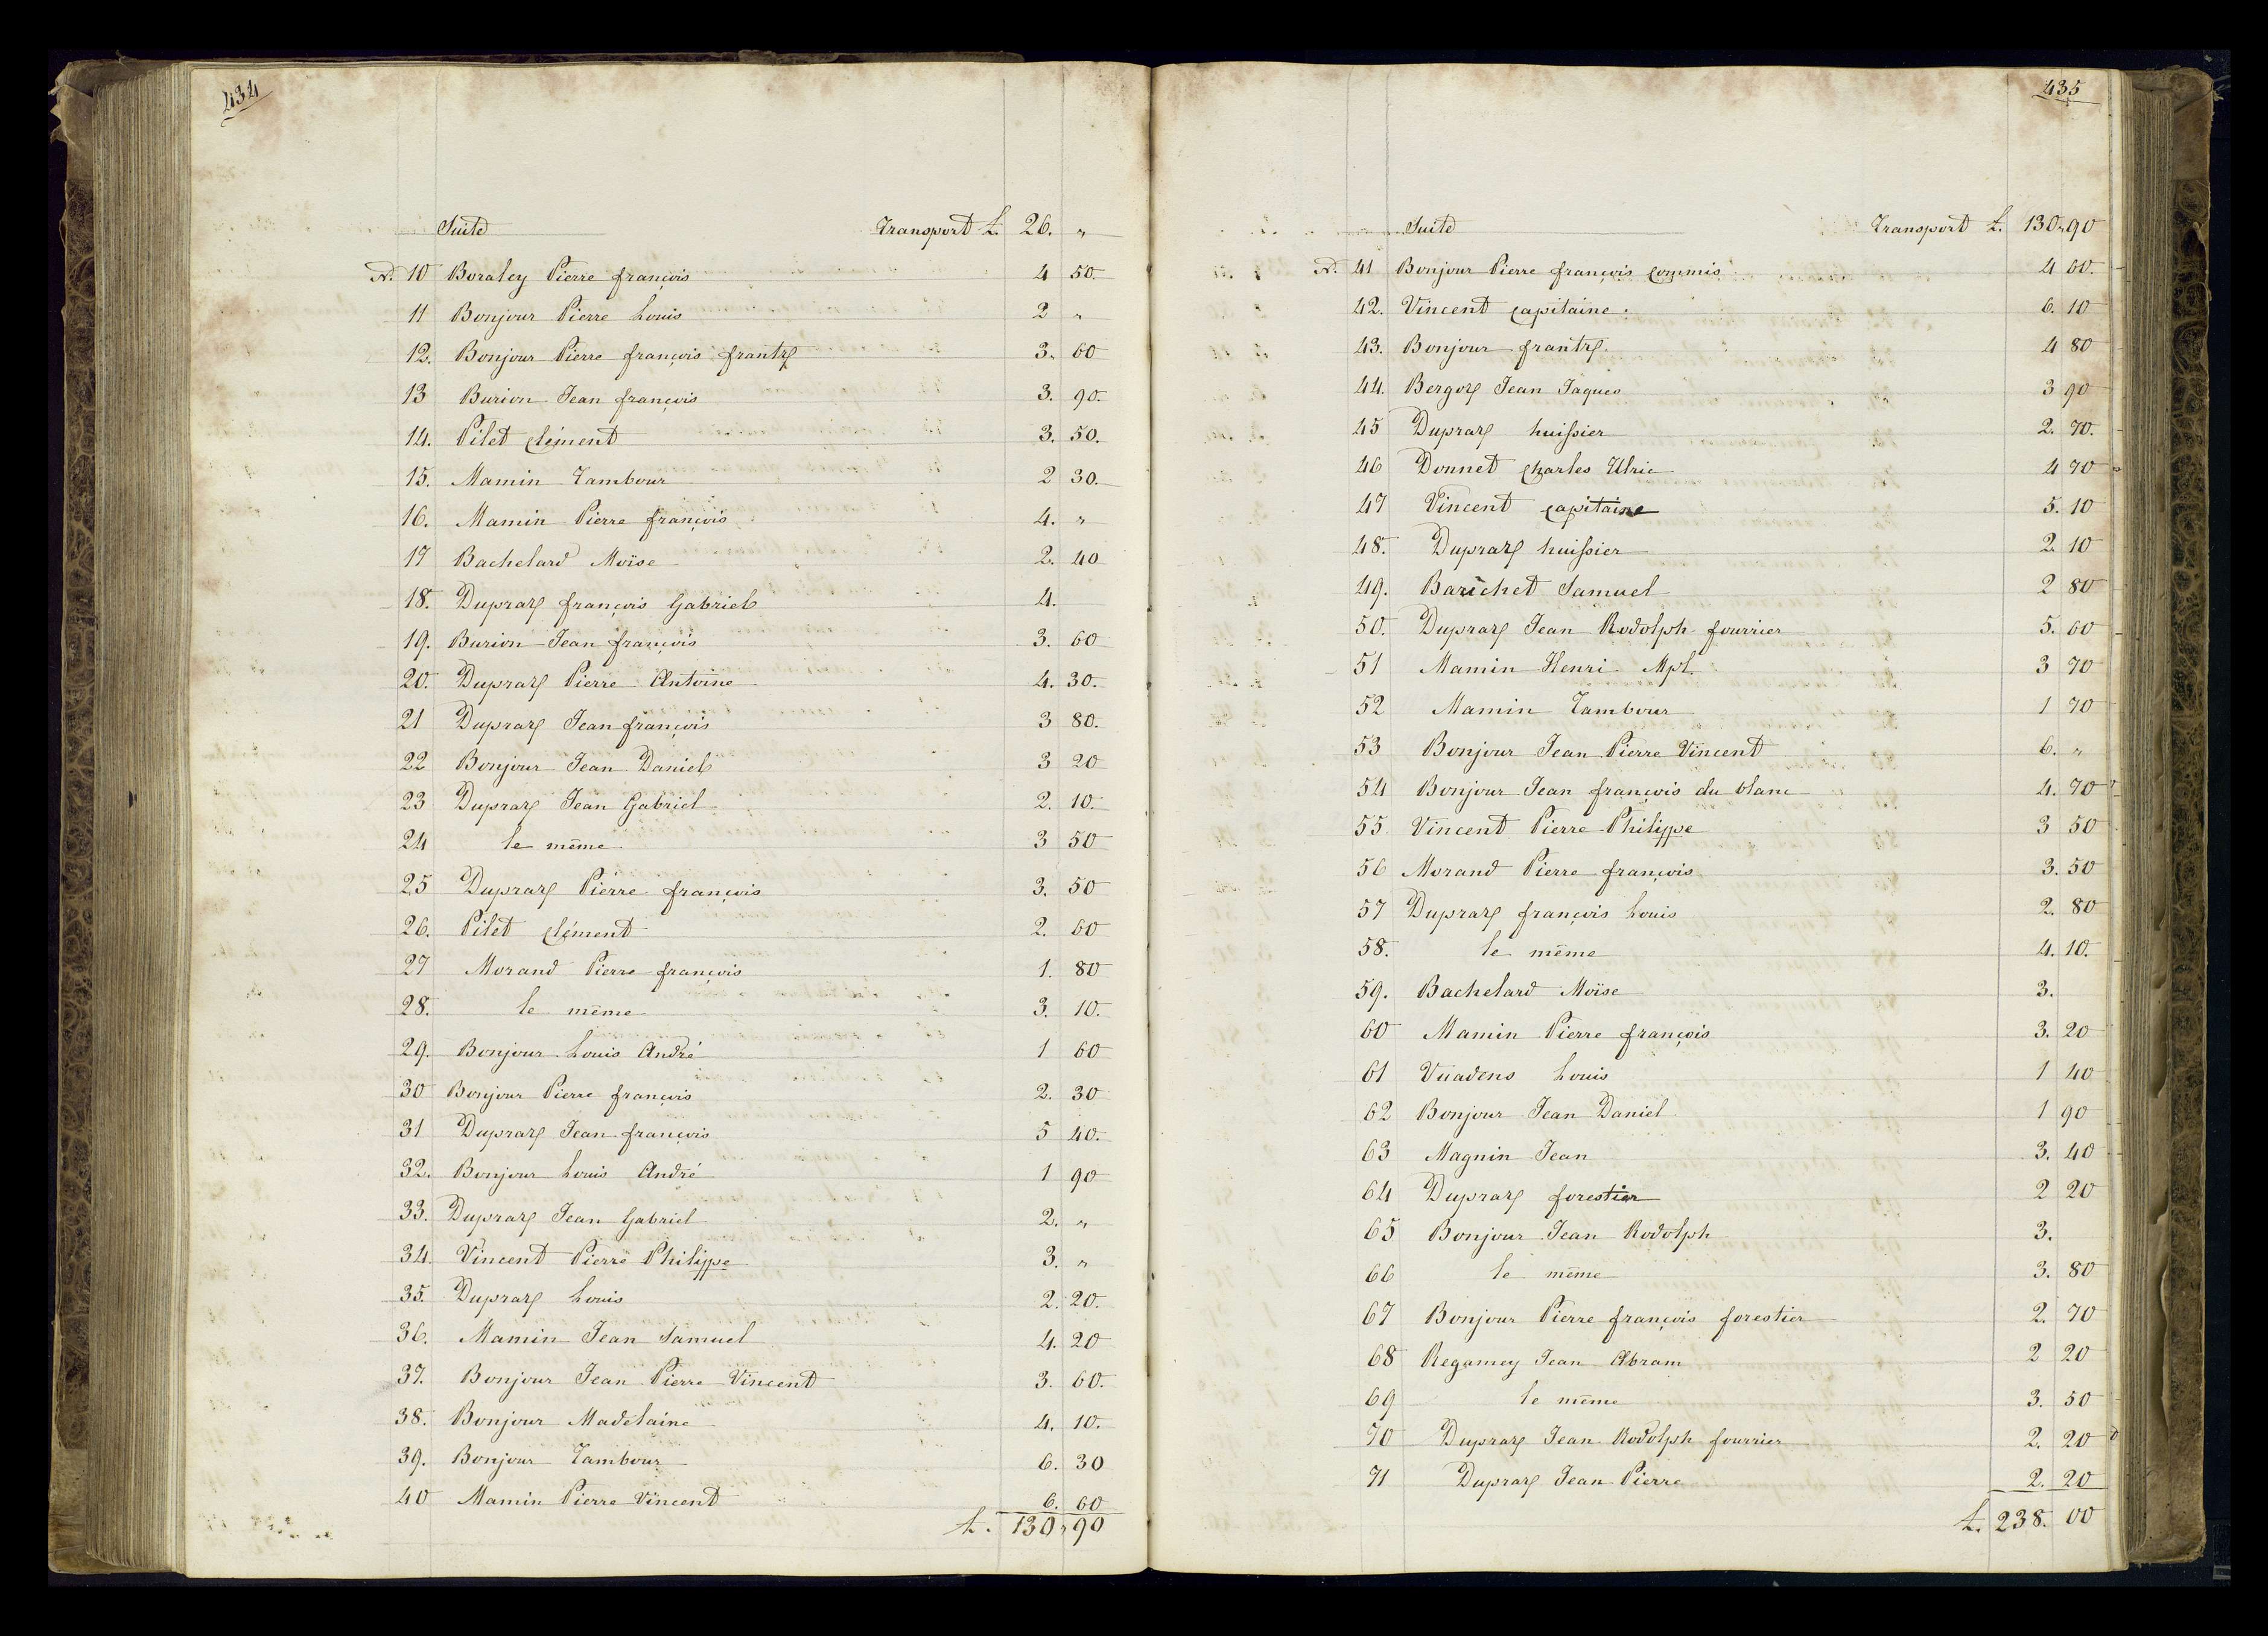 434
Suite Transport L. 26. "
N. 10 Boraley Pierre françois 4 50.
11 Bonjour Pierre Louis 2 "
12. Bonjour Pierre françois frantz 3. 60
13 Burion Jean françois 3. 90.
14. Pilet Clément 3. 50.
15. Mamin Tambour 2 30.
16. Mamin Pierre françois 4. "
17 Bachelard Moïse 2. 40
18. Dupraz françois Gabriel 4.
19. Burion Jean françois 3. 60
20. Dupraz Pierre Antoine 4. 30.
21 Dupraz Jean françois 3 80.
22 Bonjour Jean Daniel 3 20
23 Dupraz Jean Gabriel 2. 10.
24 le même 3 50
25 Dupraz Pierre françois 3. 50
26. Pilet Clément 2. 60
27 Morand Pierre françois 1. 80
28. le même 3. 10.
29. Bonjour Louis André 1 60
30 Bonjour Pierre françois 2. 30
31 Dupraz Jean françois 5 40.
32. Bonjour Louis André 1 90
33. Dupraz Jean Gabriel 2. "
34. Vincent Pierre Philippe 3. "
35. Dupraz Louis 2. 20.
36. Mamin Jean Samuel 4. 20
37. Bonjour Jean Pierre Vincent 3. 60.
38. Bonjour Madelaine 4. 10.
39. Bonjour Tambour 6. 30
40 Mamin Pierre Vincent 6. 60
L. 130 " 90
435
Suite Transport L. 130 " 90
N. 41 Bonjour Pierre françois Commis 4 60.
42. Vincent Capitaine. 6. 10
43. Bonjour frantz. 4 80
44. Bergoz Jean Jaques 3 90
45 Dupraz huissier 2. 70.
46 Donnet Charles Ulric 4 70
47 Vincent Capitaine 5. 10
48. Dupraz huissier 2. 10
49. Barichet Samuel 2 80
50. Dupraz Jean Rodolph fourrier 5. 60
51 Mamin Henri Mpl. 3 70
52 Mamin Tambour 1 70
53 Bonjour Jean Pierre Vincent 6. "
54 Bonjour Jean françois du blanc 4. 70
55. Vincent Pierre Philippe 3 50
56 Morand Pierre françois 3. 50
57 Dupraz françois Louis 2. 80
58. le même 4. 10.
59. Bachelard Moïse 3.
60 Mamin Pierre françois 3. 20
61 Vüadens Louis 1 40
62 Bonjour Jean Daniel 1 90
63 Magnin Jean 3. 40
64 Dupraz forestier 2 20
65 Bonjour Jean Rodolph 3.
66 le même 3. 80
67 Bonjour Pierre françois forestier 2. 70
68 Regamey Jean Abram 2 20
69 le même 3. 50
70 Dupraz Jean Rodolph fourrier 2. 20
71 Dupraz Jean Pierre 2. 20
L. 238. 00